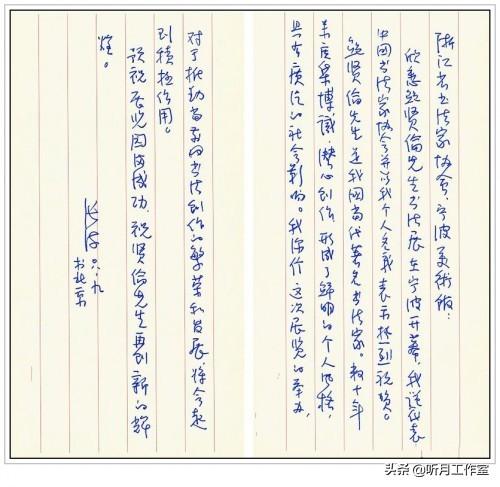 浙江省书法家协会、宁波美术馆：
欣悉鲍贤伦先生书法展在宁波开幕，我谨代表
中国书法家协会并以我个人名义表示热烈祝贺。
鲍贤伦先生是我国当代著名书法家。数十年
来，广采博识，潜心创作，形成了鲜明的个人风格，
具有广泛的社会影响。我深信这次展览的举办，
对于推动当前的书法创作的繁荣和发展，将会起
到积极作用。
预祝展览圆满成功，祝贤伦先生再创新的辉
煌。
张海 六·九
于北京
头条 @听月工作室